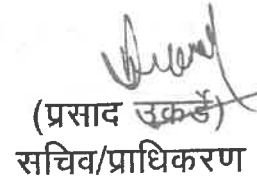 (प्रसाद उकर्डे)
सचिव/प्राधिकरण